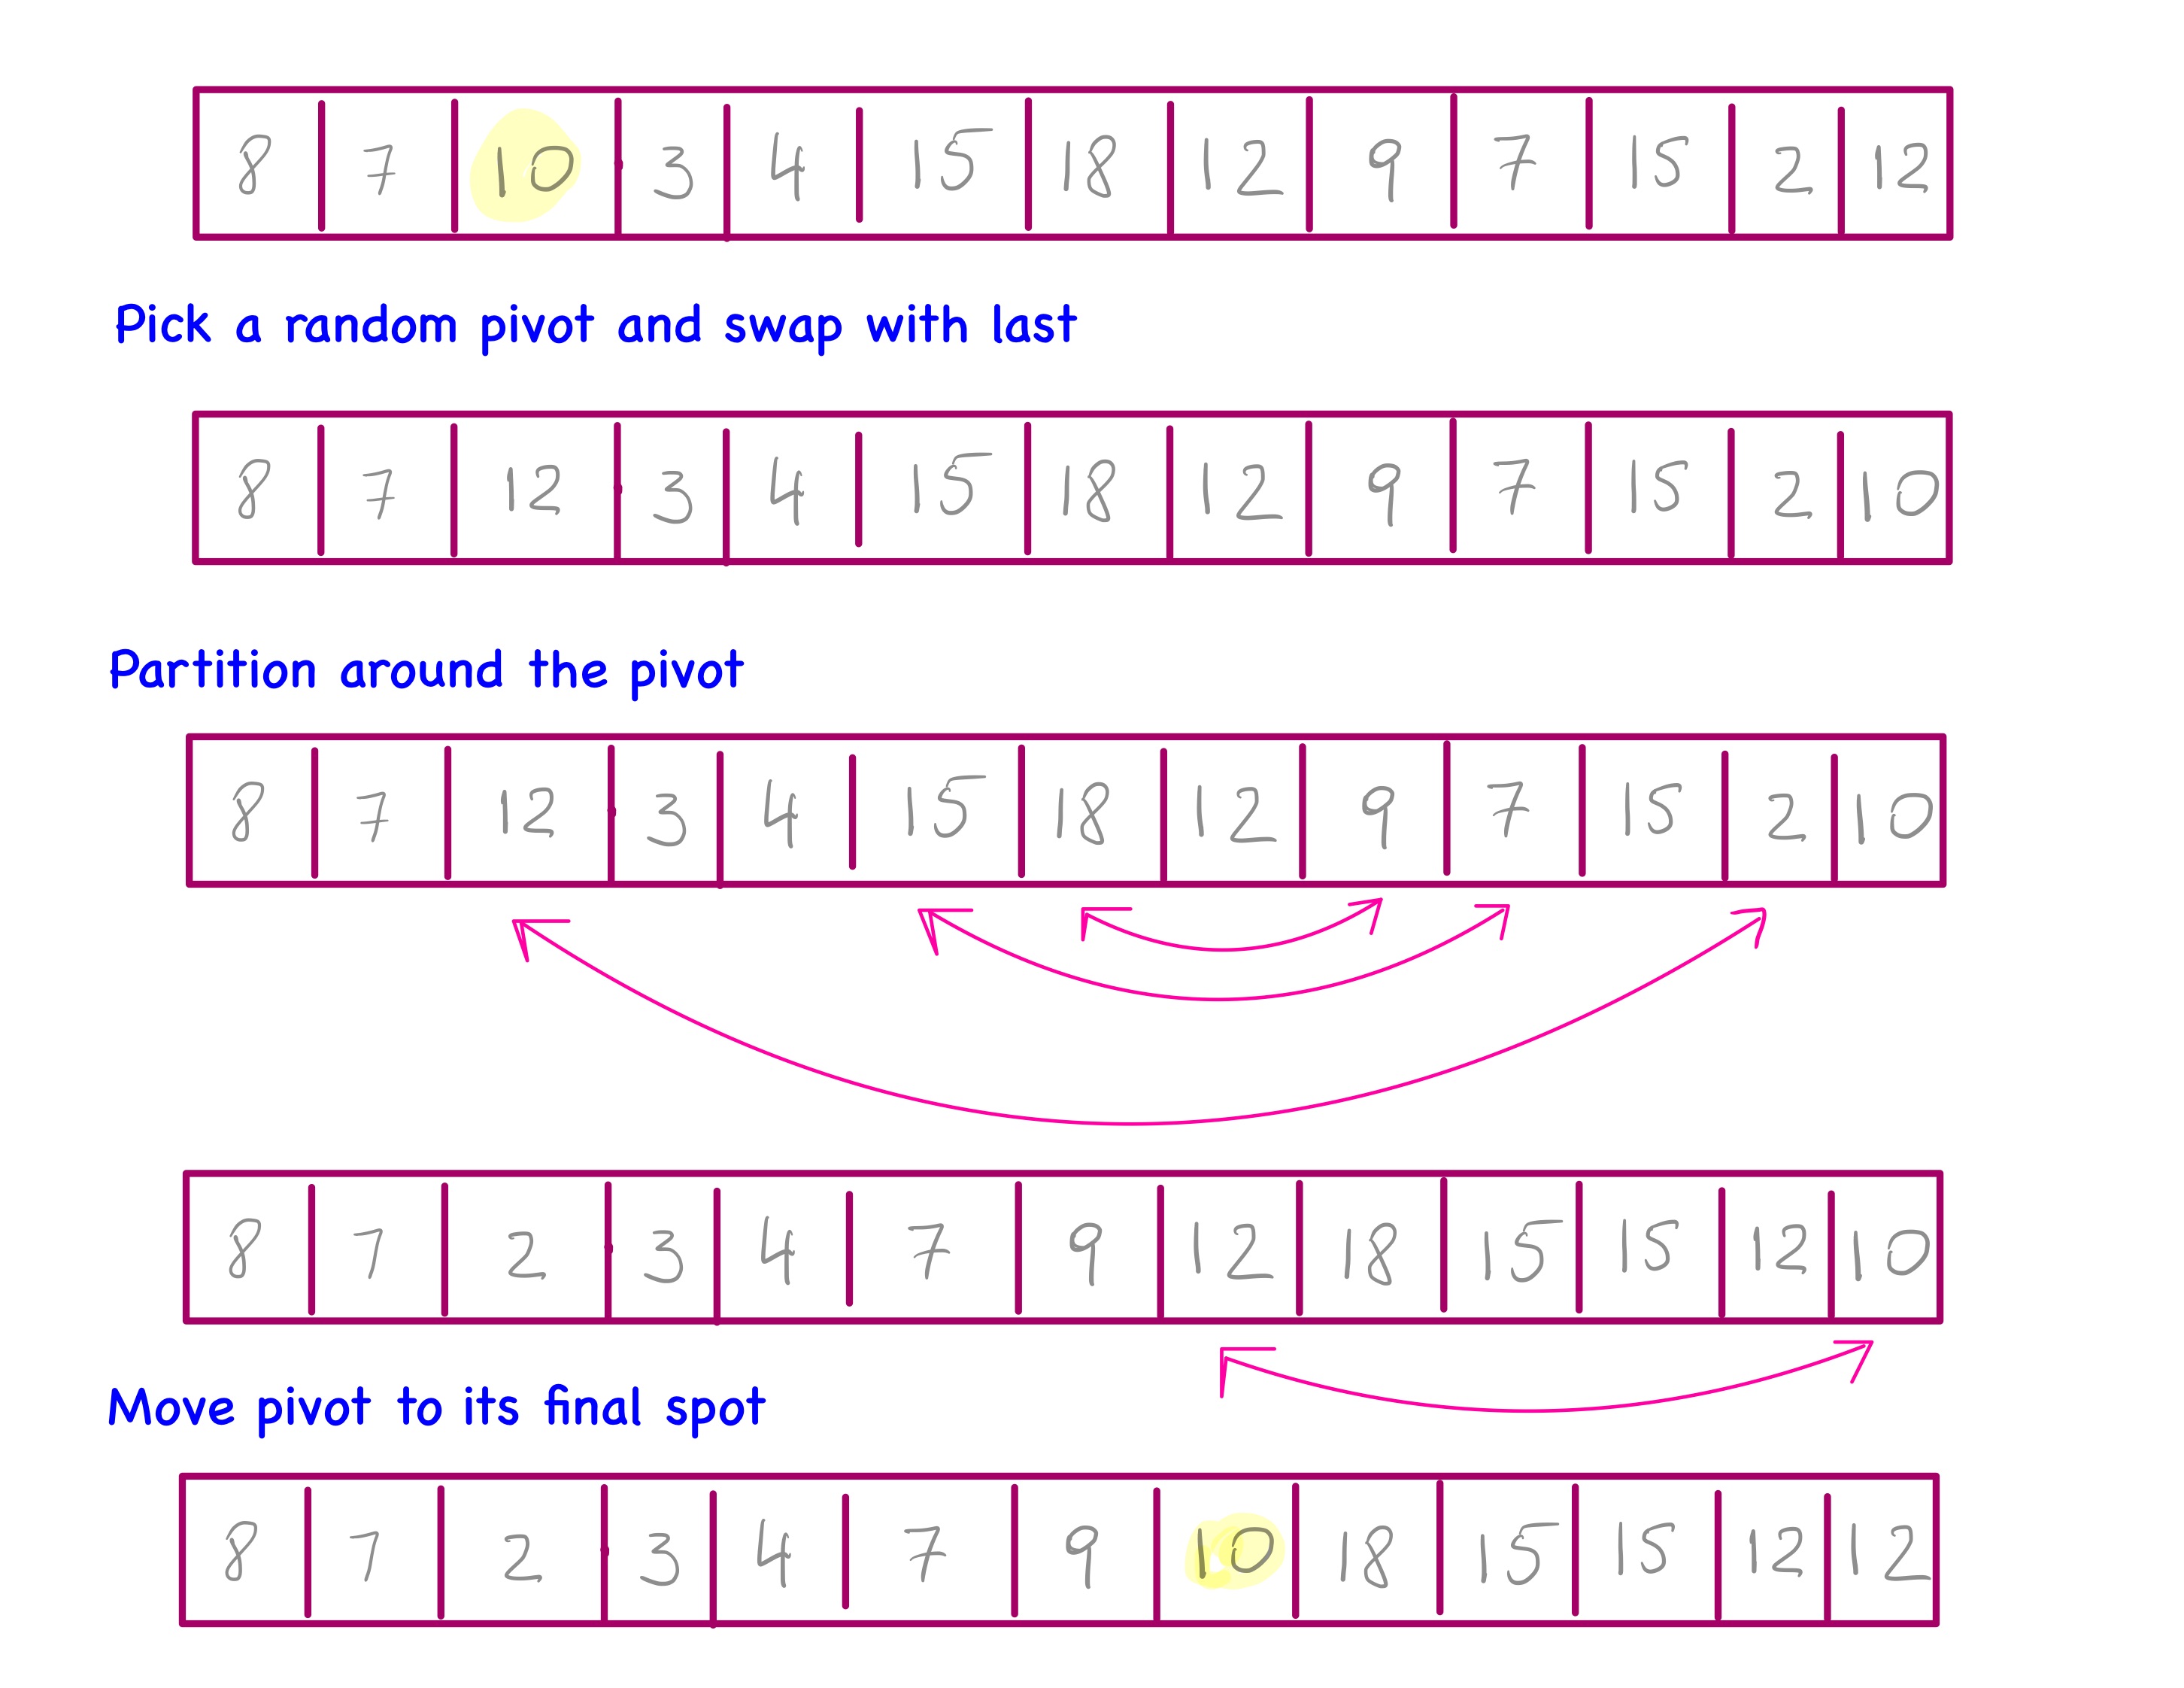 8 7 10 3 4 15 18 12 9 7 15 2 12
Pick a random pivot and swap with last
8 7 12 3 4 15 18 12 9 7 15 2 10
Partition around the pivot
8 7 12 3 4 15 18 12 9 7 15 2 10
8 7 2 3 4 7 9 12 18 15 15 12 10
Move pivot to its final spot
8 7 2 3 4 7 9 10 18 15 15 12 12